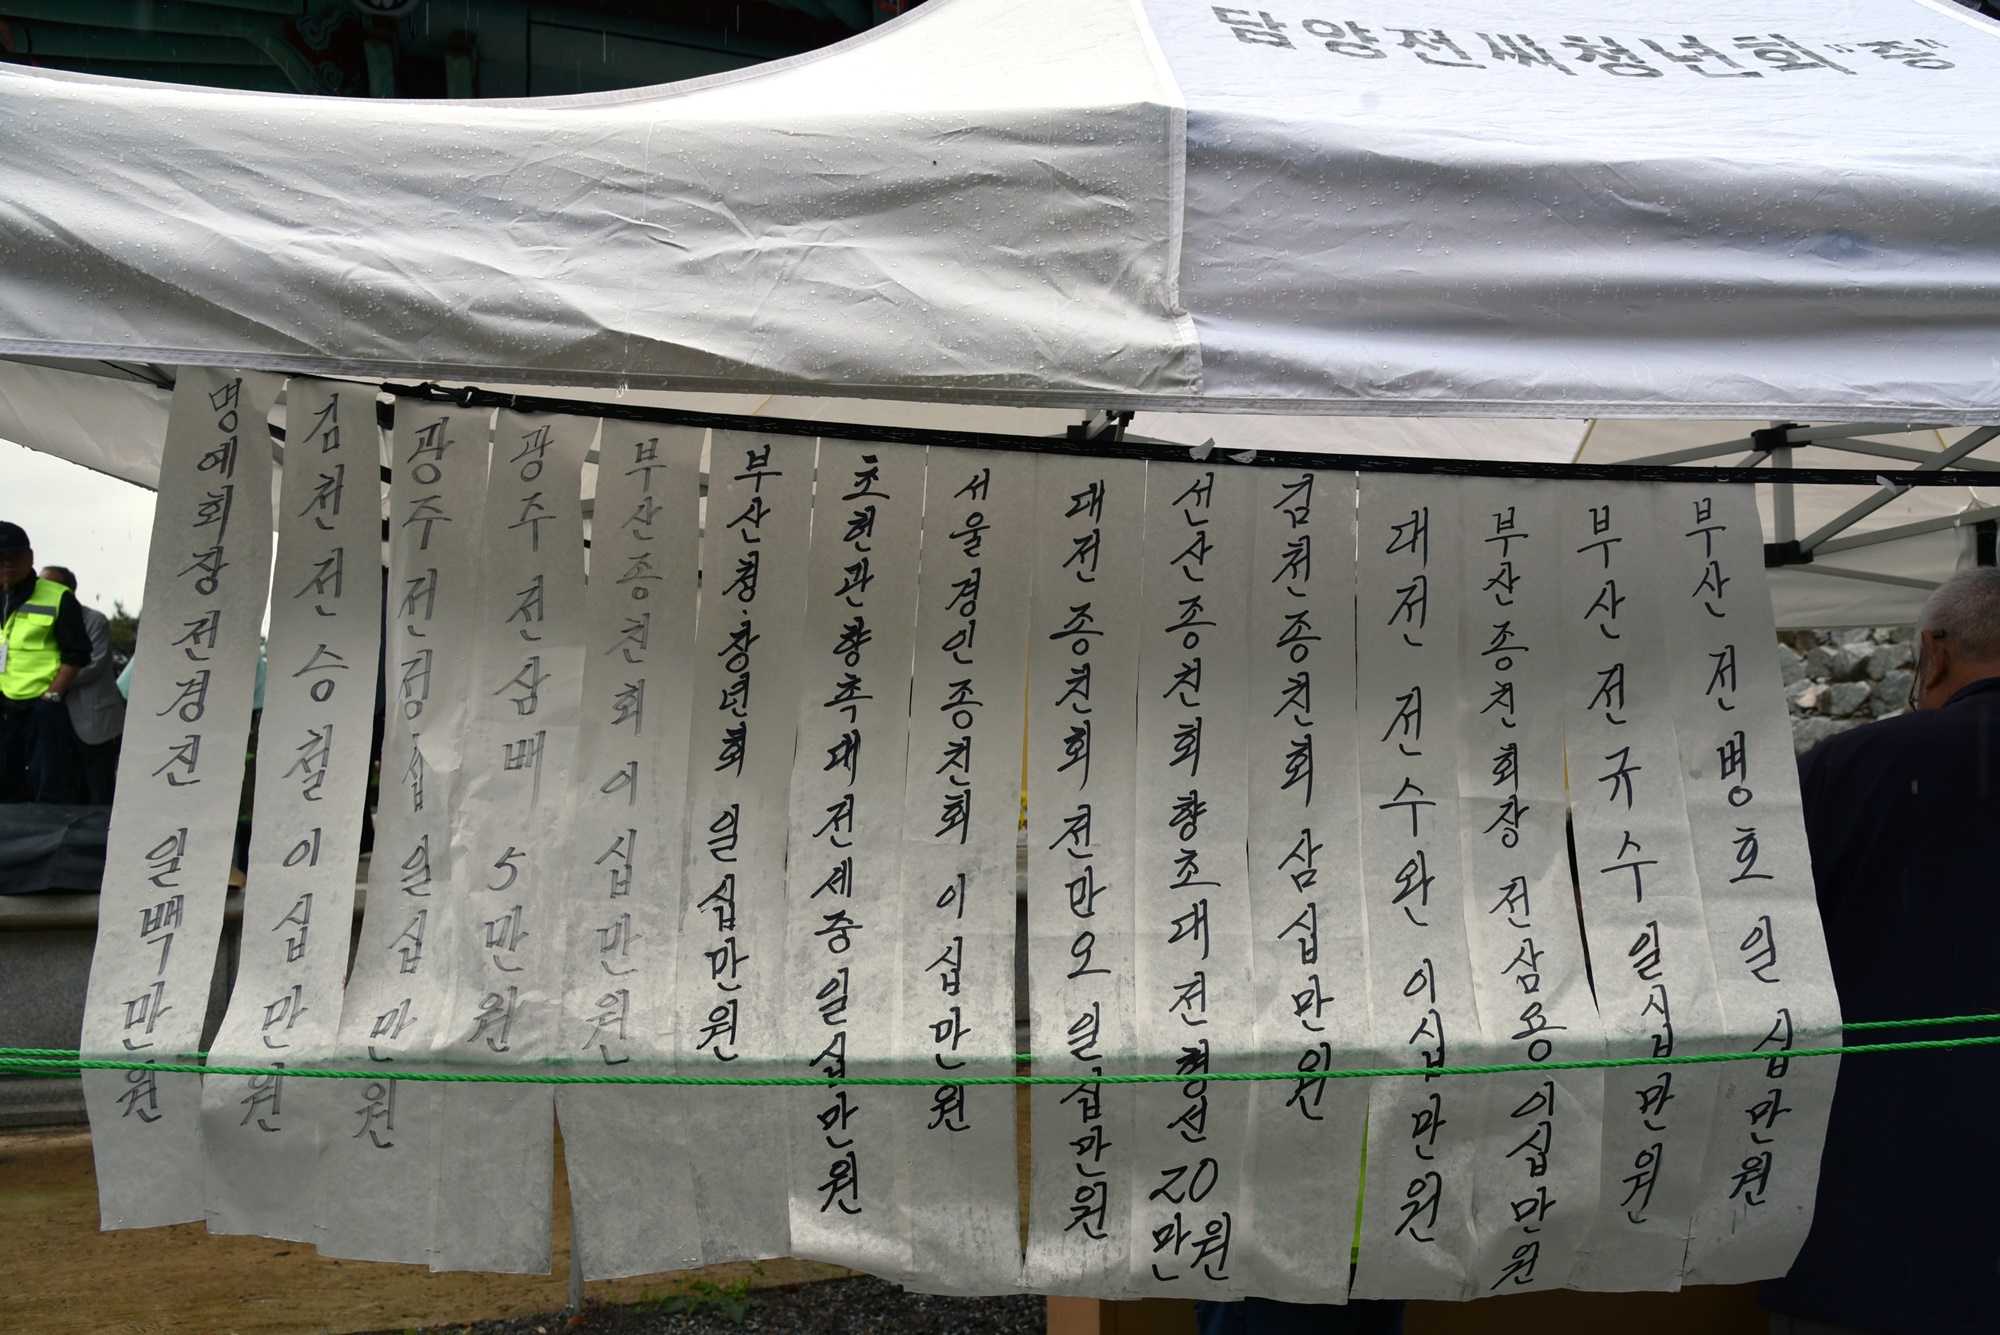 담양전씨청년회"증"
명예회장전경진 일백만원
김천전승철이십만원
광주전정섭일십만원
광주전삼배 5만원
부산종친회이십만원
부산청·장년회 일십만원
초헌관향촉대전세중일십만원
서울경인종친회 이십만원
대전종친회전만오일십만원
선산종친회향초대전형선20만원
김천종친회 삼십만원
대전 전수완 이십만원
부산종친회장 전삼용이십만원
부산전규수일십만원
부산전병호일십만원